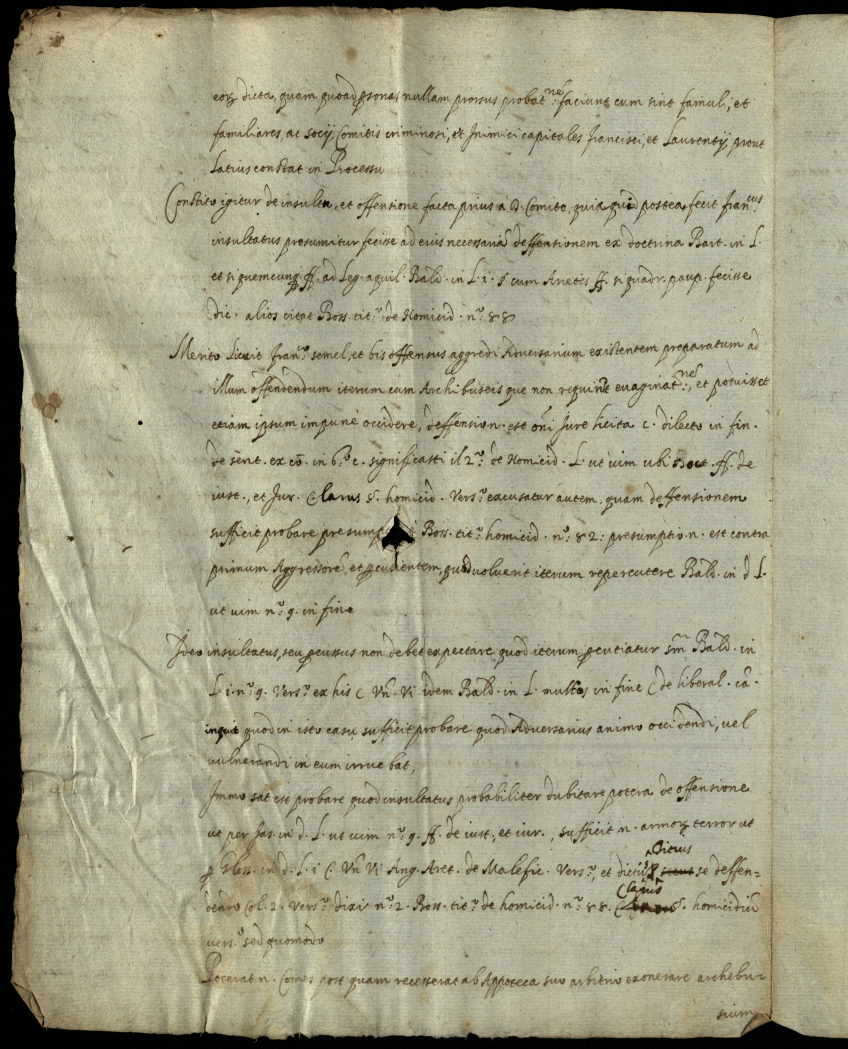 eorꝝ dicta, quam quoad ꝑsonas nullam prorsus probat.ne faciunt cum sint famuli, et
familiares, ac socij Comitis criminosi, et Inimici capitales francisci, et Laurentij, prout
Latius constat in Processu
Constito igitur de insultu, et offensione facta prius a D. Comite, quia quid postea fecit fran.cus
insultatus presumitur fecisse ad eius necessariā deffensionem ex doctrina Bart. in L.
et si quemcunqꝫ ff. ad Leg. aquil. Bald. in L. i. § cum Arietes ff. si quadr. paup. fecisse
dic. alios citat Boss. tit.o de Homicid. n.o 88
Merito Licuit fran.co semel, et bis offensus aggredi Adversarium existentem preparatum ad
illum offendendum iterum cum Archibuseis que non requirūt evaginat.ne, et potuisset
etiam ipsum impunè occidere, deffensio n. est oñi Jure licita c. dilecto in fin.
de sent. ex cō. in 6.o c. significasti il 2.o de Homicid. L. ut vim ubi ff. de
iust., et Jur. Clarus §. homicid. Vers.o excusatur autem, quam deffensionem
sufficit probare presump Boss. tit.o homicid. n.o 82: presumptio n. est contra
primum Aggressorē, et ꝑcutientem, quod voluerit iterum repercutere Bald. in d. L.
ut vim n.o 9. in fine
Ideo insultatus, seu ꝑcussus non debet expectare quod iterum ꝑcutiatur sm̄ Bald. in
L. i. n.o 9. Vers.o ex his C. Vn. Vi idem Bald. in L. nullos in fine C. de liberal. cā.
inquit quod in isto casu sufficit probare quod Adversarius animo occidendi, vel
vulnerandi in eum irruebat,
Immo sat est probare quod insultatus probabiliter dubitare potera de offensione
ut per Jas. in d. L. ut vim n.o 9. ff. de iust., et iur., sufficit n. armorꝝ terror ut
ꝑ Gloss. in d. L. i C. Vn. Vi Ang. Aret. de Malefic. Vers.o, et dictus Titius se deffen=
dendo Col. 2. Vers.o dixi n.o 2. Boss. tit.o de homicid. n.o 88. Clarus §. homicidiū
vers.o sed quomodo
Poterat n. Comes post quam recesserat ab Appoteca suo arbitrio exonerare archebu=
sium